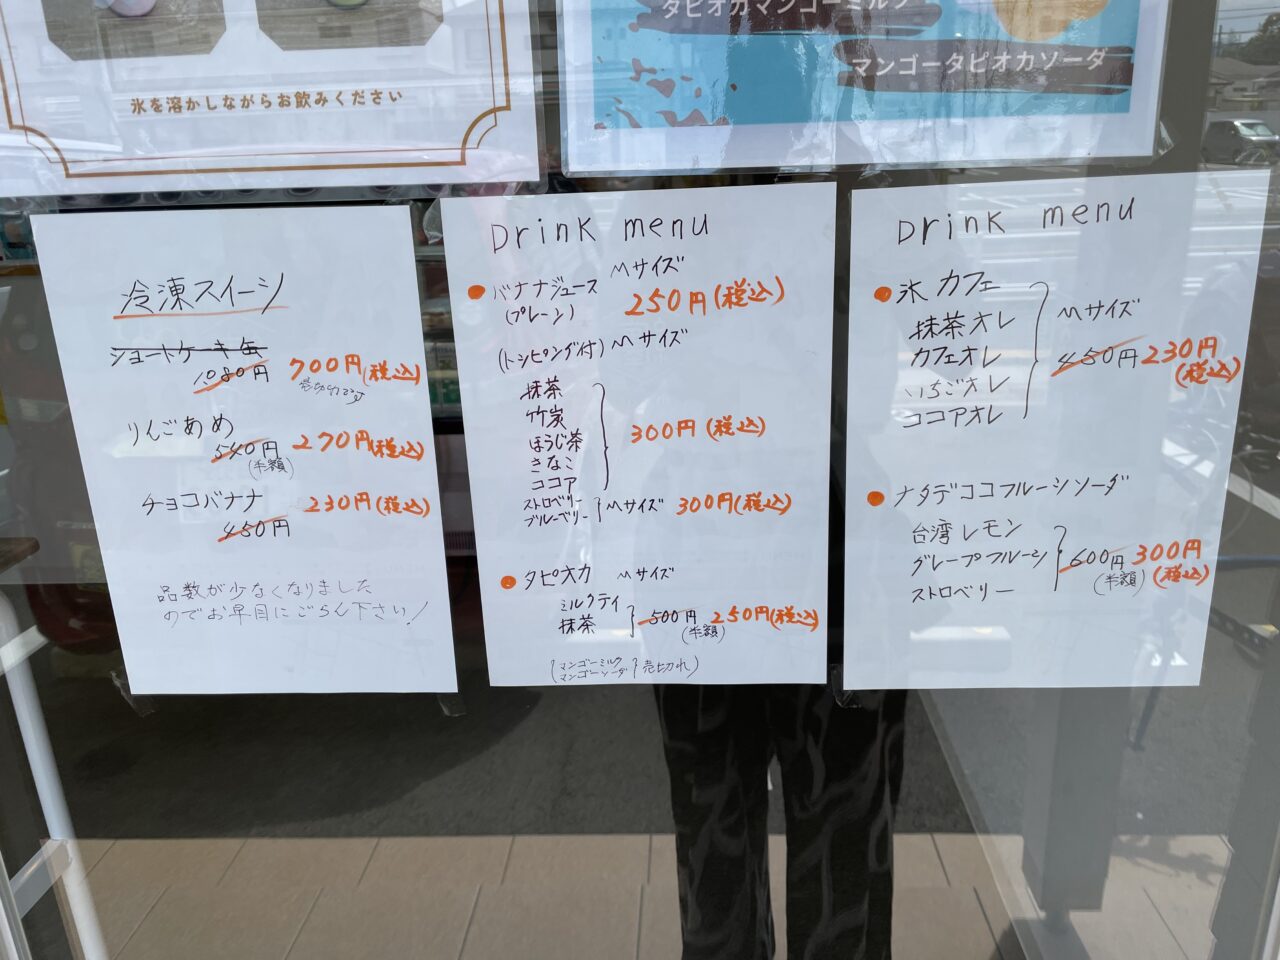 氷を溶かしながらお飲みください
タピオカマンゴーミルク
マンゴータピオカソーダ
冷凍スイーツ
ショートケーキ缶
1,080円 700円(税込)
りんごあめ
540円 270円(税込)
(半額)
チョコバナナ 230円(税込)
450円
品数が少なくなりました
のでお早目にごらん下さい!
Drink menu
バナナジュース Mサイズ
(プレーン) 250円(税込)
(トッピング付) Mサイズ
抹茶
竹炭
ほうじ茶 300円(税込)
きなこ
ココア
ストロベリー
ブルーベリー Mサイズ 300円(税込)
タピオカ Mサイズ
ミルクティ
抹茶 500円 250円(税込)
(半額)
(マンゴーミルク
マンゴーソーダ 売切れ)
Drink menu
氷カフェ
抹茶オレ Mサイズ
カフェオレ 450円 230円
(税込)
いちごオレ
ココアオレ
ナタデココフルーツソーダ
台湾レモン
グレープフルーツ 600円 300円
(半額) (税込)
ストロベリー